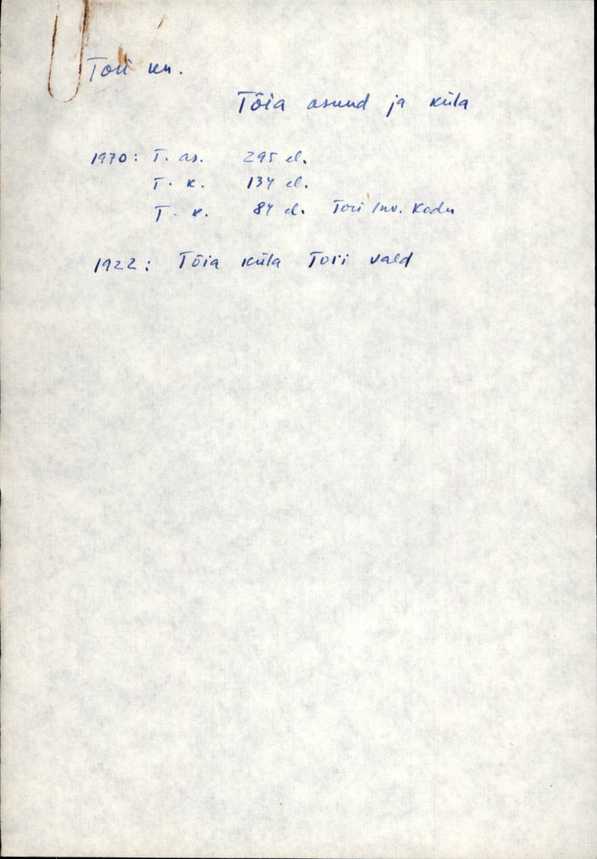 Tori kn.
Tõia asund ja küla
1970: T. as. 295 el.
T. k. 134 el.
T. k. 84 el. Tori Inv. Kodu
1922: Tõia küla Tori vald